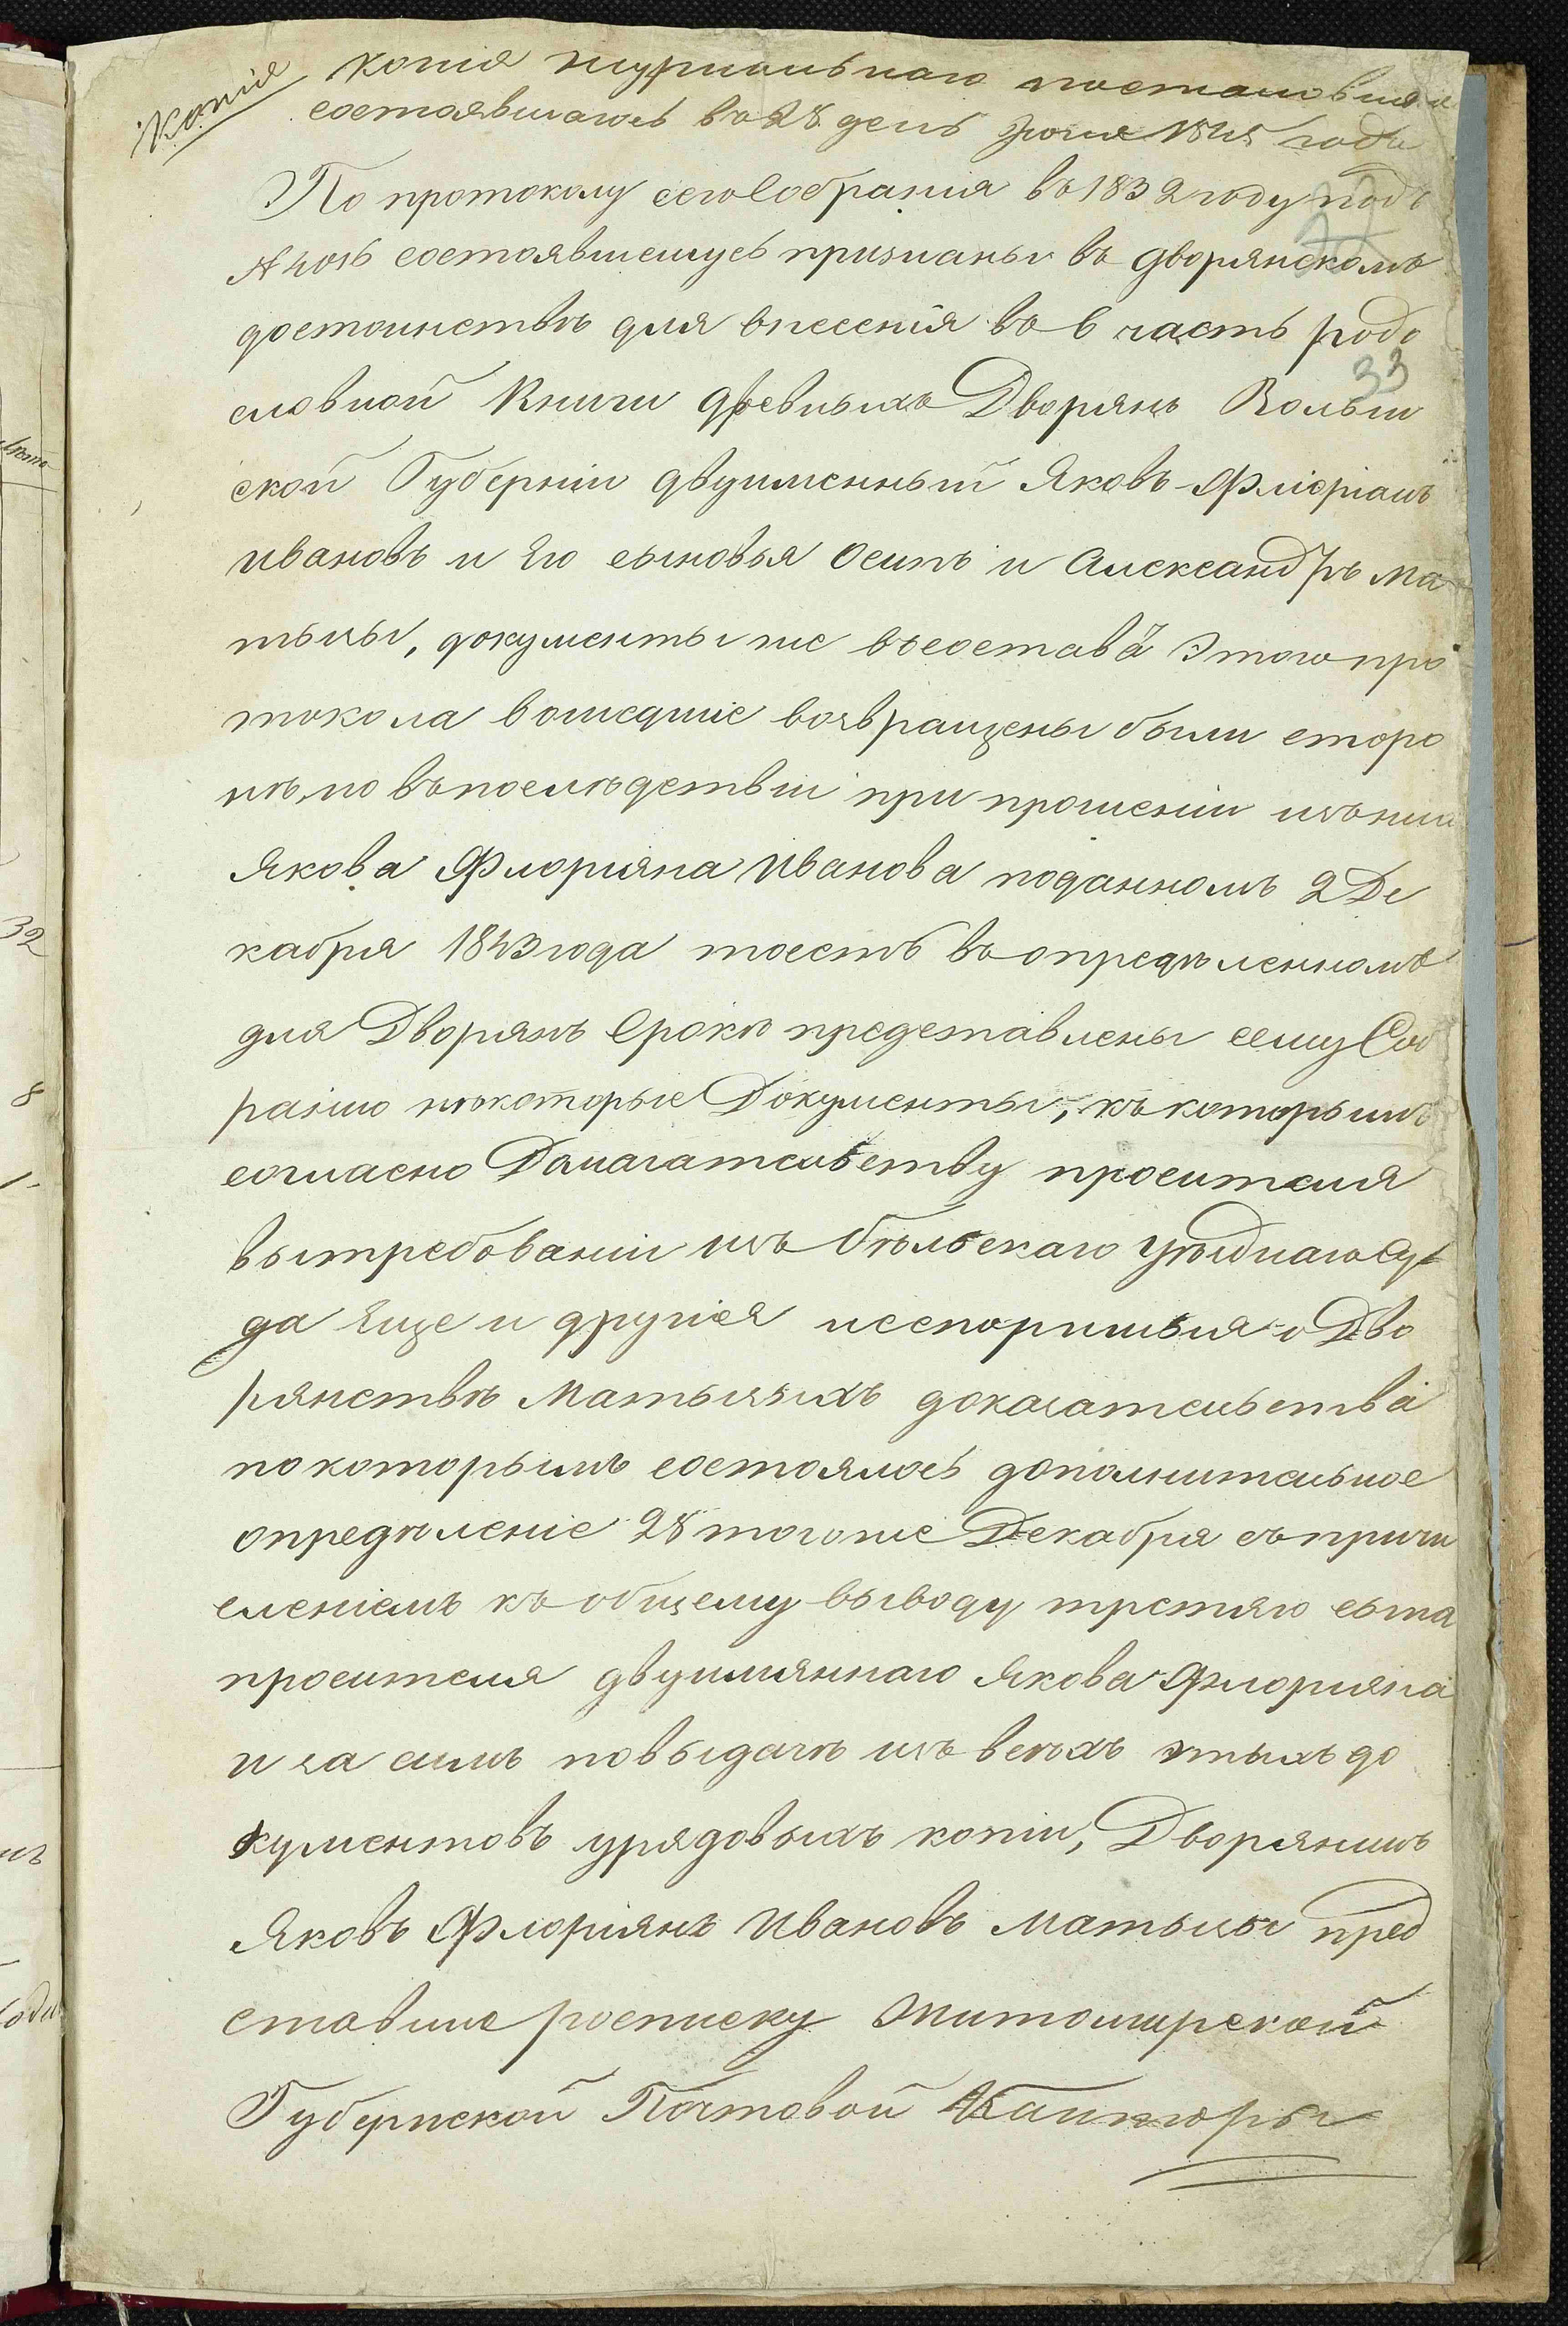 Копія
Копія журнальнаго постановленія
состоявшагось въ 28 день Іюня 1845 года
По протоколу сего Собранія въ 1832 году подъ
№ 4016 состоявшемусь признаны въ дворянскомъ
достоинствѣ для внесенія въ 6 часть родо
33
словной Книги древныхъ Дворянъ Волын
ской Губерніи двуименный Яковъ-Флоріанъ
Ивановъ и Его сыновья Осипъ и Александръ Ма
тысы, документы не въ составъ этого про
токола вошедшіе возвращены были сторо
нѣ, но въ послѣдствіи при прошеніи изъ нихъ
Якова Флоріяна Иванова поданномъ 2 Де
кабря 1843 года тоесть въ опредѣленномъ
для Дворянъ Срокѣ представлены сему Соб
ранію нѣкоторые Документы, къ которымъ
согласно Домагательству просителя
вытребованіи изъ Бѣльскаго Уѣзднаго Су
да Еще и другіея неспоримыя о Дво
рянствѣ Матысыхъ доказательства
по которымъ состоялось дополнительное
опредѣленіе 28 того же Декабря съ причи
сленіемъ къ общему выводу третяго сына
просителя двуимяннаго Якова-Флоріяна
и за симъ по выдачѣ изъ всѣхъ этыхъ до
кументовъ урядовыхъ копіи, Дворянинъ
Яковъ Флоріянъ Ивановъ Матысы пред
ставише росписку Житомирской
Губернской Почтовой Канторы